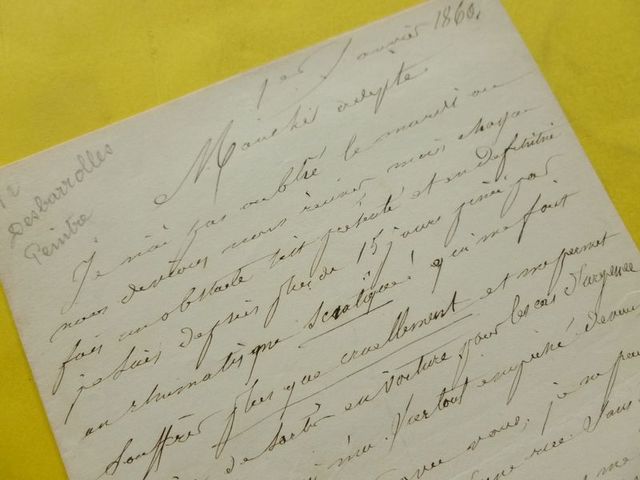 1er Janvier 1860.
Mon cher adepte
12
Desbarrolles
Peintre
Je n'ai pas oublié le mardi ou
nous devions nous réunir mais chaque
fois un obstacle s'est présenté et en définitive
je suis depuis plus de 15 jours piné par
un rhumatisme sciatique! qui me fait
souffrir plus que cruellement et me permet
de sortir en voiture pour les cas d'urgence
surtout empêché
avec vous, je